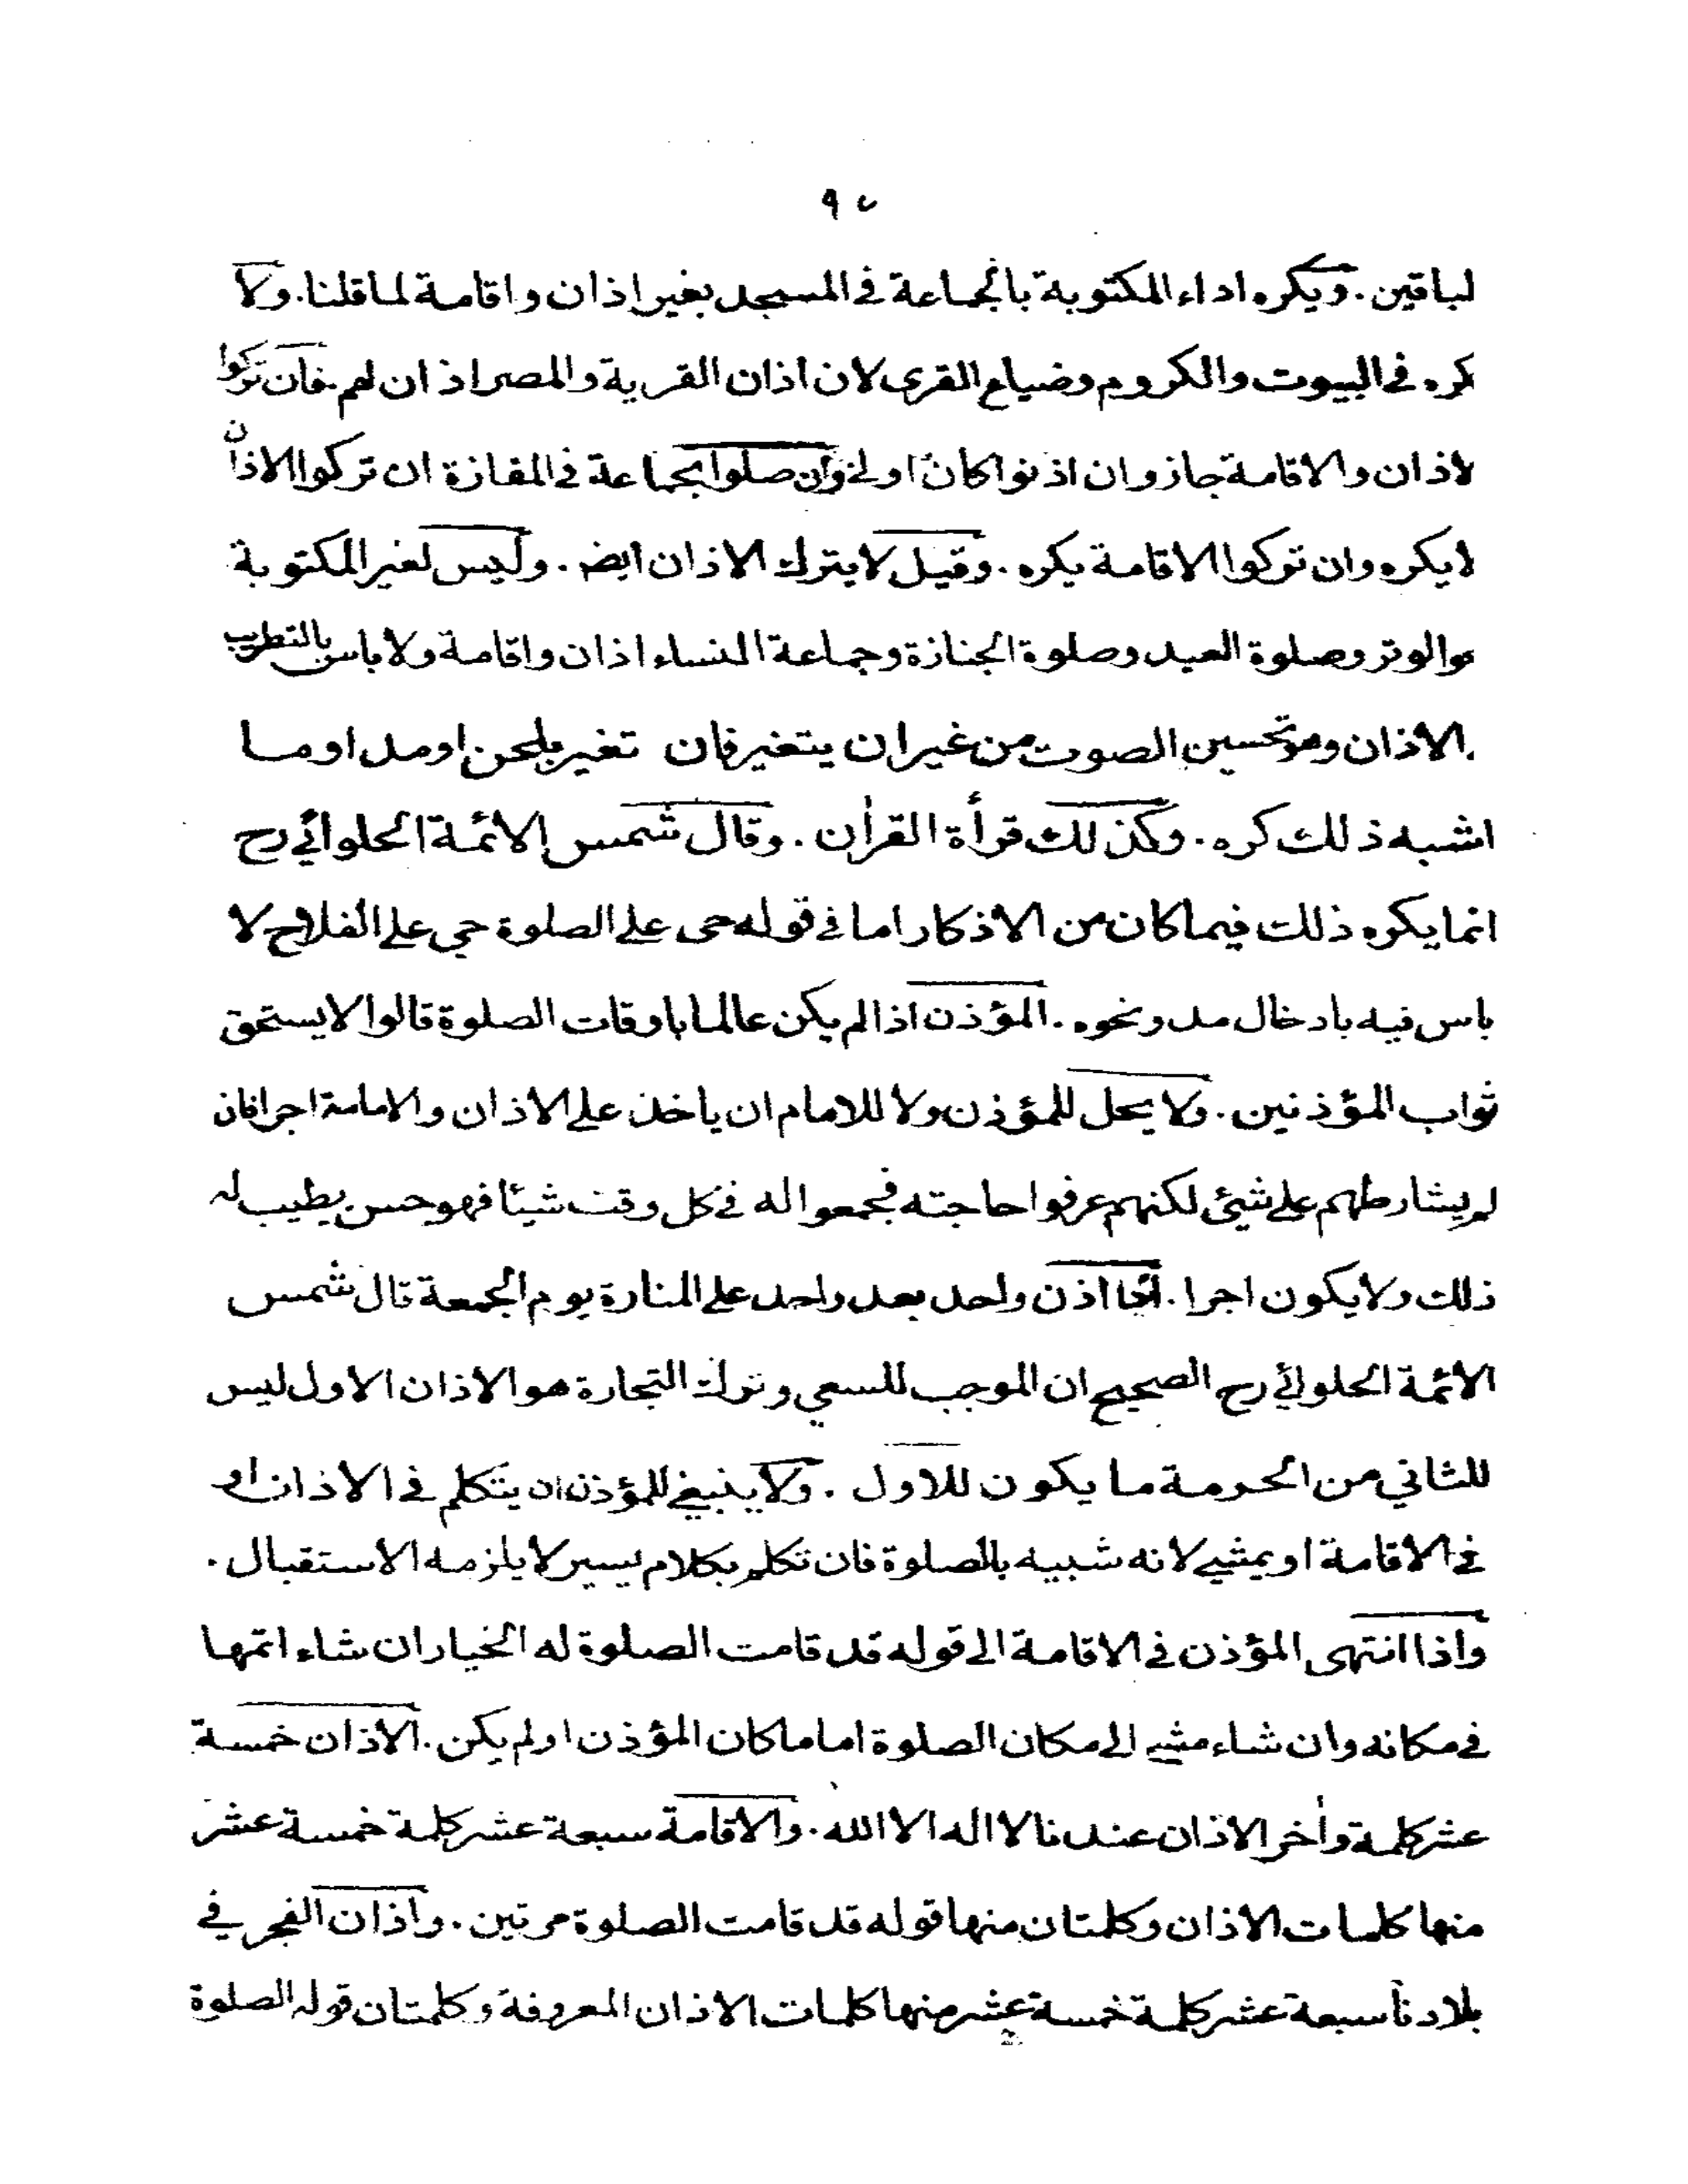 ٩٧
لباقين. ويكره اداء المكتوبة بالجماعة في المسجد بغير اذان واقامة لما قلنا. ولا
كره في البيوت والكروم وضياع القرى لان اذان القرية والمصر اذان لهم. فان تركوا
لاذان والاقامة جاز وان اذنوا كان اولى وان صلوا بجماعة في المفازة ان تركوا الاذان
لا يكره وان تركوا الاقامة يكره. وقيل لا يترك الاذان ايض. وليس لغير المكتوبة
والوتر وصلوة العيد وصلوة الجنازة وجماعة النساء اذان واقامة ولا باس بالتطريب
الاذان وهو تحسين الصوت من غير ان يتغير فان تغير بلحن او مد او ما
اشبه ذلك كره. وكذلك قرأة القرأن. وقال شمس الائمة الحلوائي رح
انما يكره ذلك فيما كان من الاذكار اما في قوله حى على الصلوة حي على الفلاح لا
باس فيه بادخال مد ونحوه. المؤذن اذا لم يكن عالما باوقات الصلوة قالوا لا يستحق
ثواب المؤذنين. ولا يحل للمؤذن ولا للامام ان ياخذ على الاذان والامامة اجرا فان
لم يشارطهم على شيئ لكنهم عرفوا حاجته فجمعوا له في كل وقت شيئا فهو حسن يطيب له
ذلك ولا يكون اجرا. اذا اذن واحد بعد واحد على المنارة يوم الجمعة قال شمس
الائمة الحلوائي رح الصحيح ان الموجب للسعي وترك التجارة هو الاذان الاول ليس
للثاني من الحرمة ما يكون للاول. ولا ينبغي للمؤذن ان يتكلم في الاذان او
في الاقامة او يمشي لانه شبيه بالصلوة فان تكلم بكلام يسير لا يلزمه الاستقبال.
واذا انتهى المؤذن في الاقامة الى قوله قد قامت الصلوة له الخيار ان شاء اتمها
في مكانه وان شاء مشى الى مكان الصلوة اماما كان المؤذن او لم يكن. الاذان خمسة
عشر كلمة وأخر الاذان عندنا لا اله الا الله. والاقامة سبعة عشر كلمة خمسة عشر
منها كلمات الاذان وكلمتان منها قوله قد قامت الصلوة مرتين. واذان الفجر في
بلادنا سبعة عشر كلمة خمسة عشر منها كلمات الاذان المعروفة وكلمتان قوله الصلوة